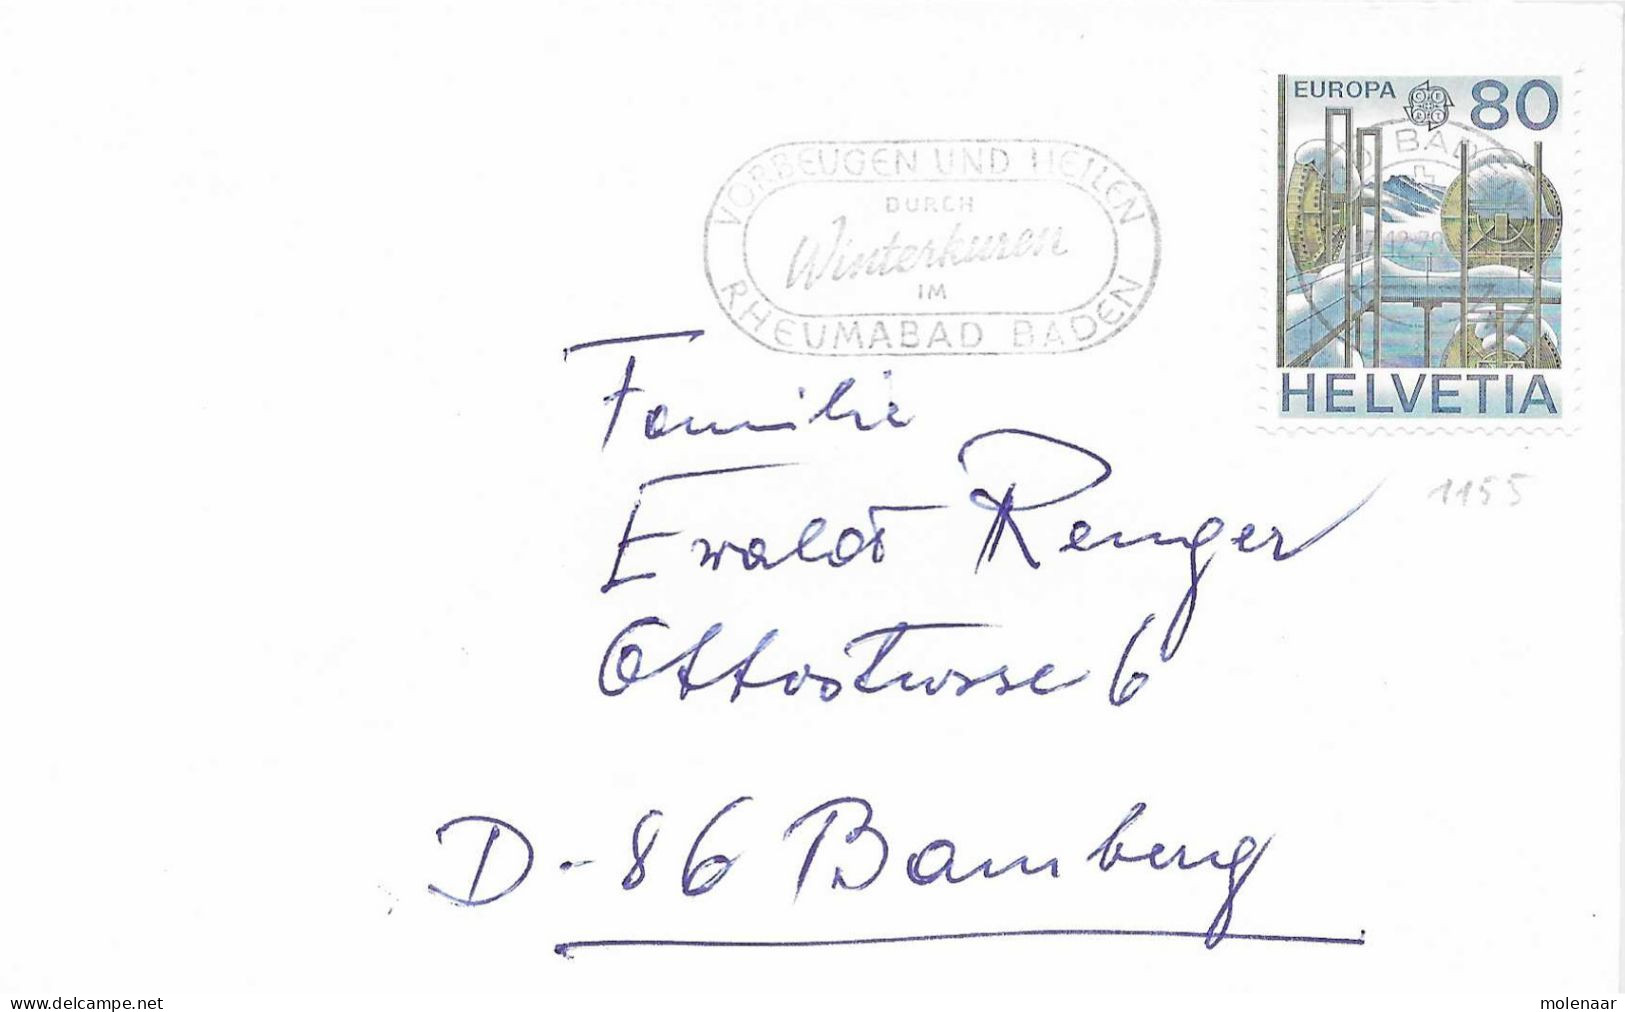 EUROPA 80
HELVETIA
BADEN
VORBEUGEN UND HEILEN
DURCH
Winterkuren
IM
RHEUMABAD BADEN
1155
Familie
Ewald Renger
Ottostrasse 6
D-86 Bamberg
www.delcampe.net
molenaar